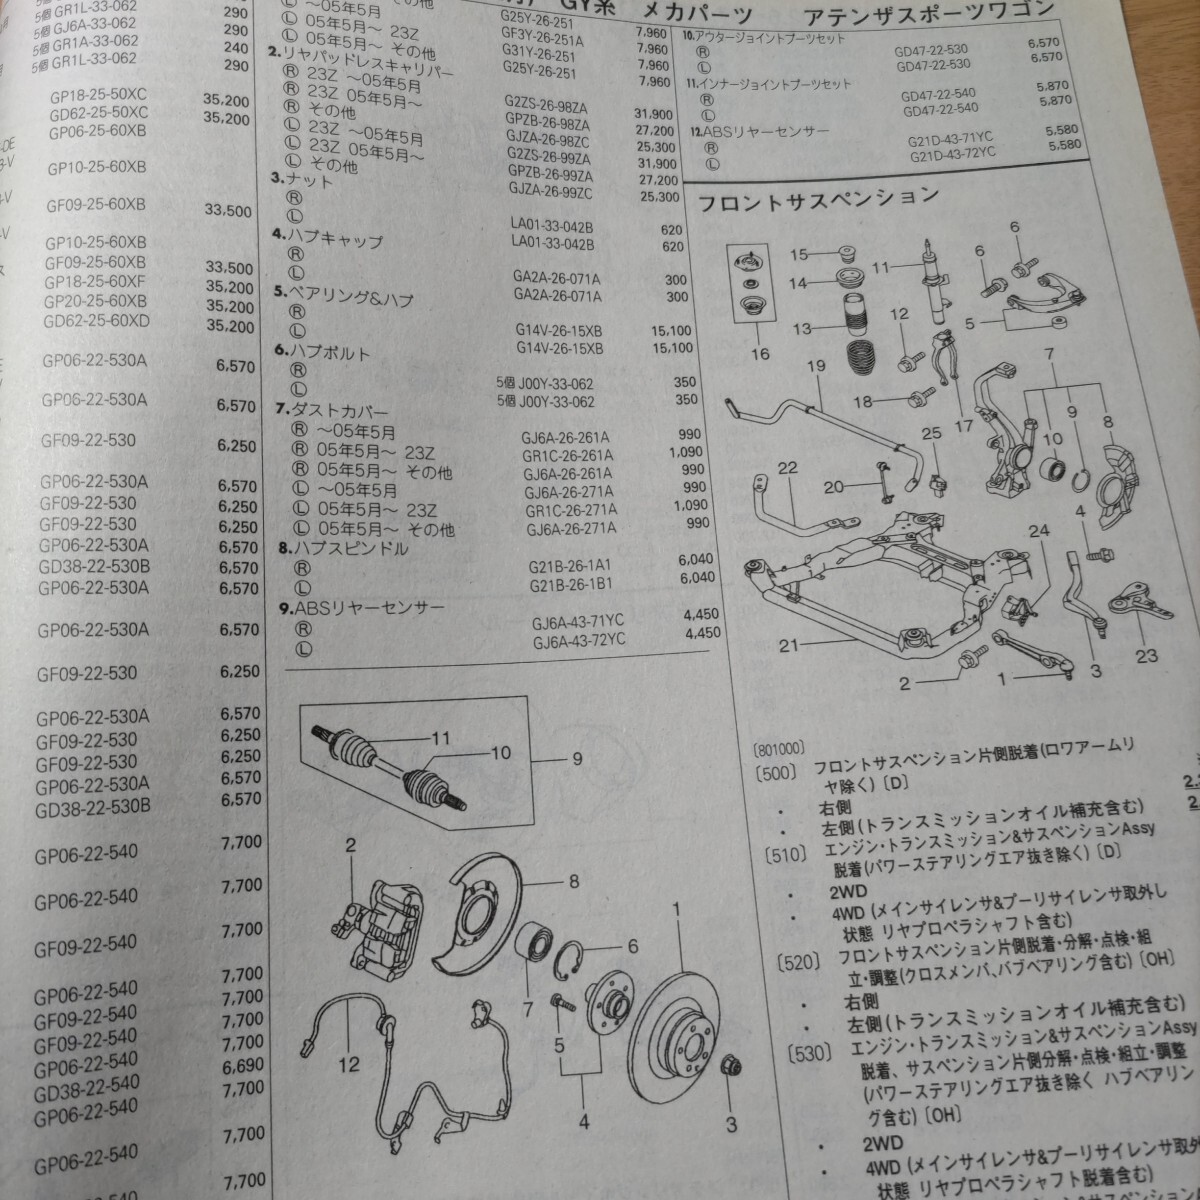 GY系 メカパーツ アテンザスポーツワゴン
290
5個 GJ6A-33-062 290
5個 GR1A-33-062 240
5個 GR1L-33-062 290
GP18-25-50XC 35,200
GD62-25-50XC 35,200
GP06-25-60XB
GP10-25-60XB
GF09-25-60XB 33,500
GP10-25-60XB
GF09-25-60XB 33,500
GP18-25-60XF 35,200
GP20-25-60XB 35,200
GD62-25-60XD 35,200
GP06-22-530A 6,570
GP06-22-530A 6,570
GF09-22-530 6,250
GP06-22-530A 6,570
GF09-22-530 6,250
GF09-22-530 6,250
GP06-22-530A 6,570
GD38-22-530B 6,570
GP06-22-530A 6,570
GP06-22-530A 6,570
GF09-22-530 6,250
GP06-22-530A 6,570
GF09-22-530 6,250
GF09-22-530 6,250
GP06-22-530A 6,570
GD38-22-530B 6,570
GP06-22-540 7,700
GP06-22-540 7,700
GF09-22-540 7,700
GP06-22-540 7,700
GF09-22-540 7,700
GF09-22-540 7,700
GP06-22-540 7,700
GD38-22-540 6,690
GP06-22-540 7,700
GP06-22-540 7,700
7,700
Ⓛ ～05年5月 G25Y-26-251 7,960
Ⓛ 05年5月～ 23Z GF3Y-26-251A 7,960
Ⓛ 05年5月～ その他 G31Y-26-251 7,960
G25Y-26-251 7,960
2.リヤパッドレスキャリパー
Ⓡ 23Z ～05年5月 G2ZS-26-98ZA 31,900
Ⓡ 23Z 05年5月～ GPZB-26-98ZA 27,200
Ⓡ その他 GJZA-26-98ZC 25,300
Ⓛ 23Z ～05年5月 G2ZS-26-99ZA 31,900
Ⓛ 23Z 05年5月～ GPZB-26-99ZA 27,200
Ⓛ その他 GJZA-26-99ZC 25,300
3.ナット
Ⓡ LA01-33-042B 620
Ⓛ LA01-33-042B 620
4.ハブキャップ
Ⓡ GA2A-26-071A 300
Ⓛ GA2A-26-071A 300
5.ベアリング&ハブ
Ⓡ G14V-26-15XB 15,100
Ⓛ G14V-26-15XB 15,100
6.ハブボルト
Ⓡ 5個 J00Y-33-062 350
Ⓛ 5個 J00Y-33-062 350
7.ダストカバー
Ⓡ ～05年5月 GJ6A-26-261A 990
Ⓡ 05年5月～ 23Z GR1C-26-261A 1,090
Ⓡ 05年5月～ その他 GJ6A-26-261A 990
Ⓛ ～05年5月 GJ6A-26-271A 990
Ⓛ 05年5月～ 23Z GR1C-26-271A 1,090
Ⓛ 05年5月～ その他 GJ6A-26-271A 990
8.ハブスピンドル
Ⓡ G21B-26-1A1 6,040
Ⓛ G21B-26-1B1 6,040
9.ABSリヤーセンサー
Ⓡ GJ6A-43-71YC 4,450
Ⓛ GJ6A-43-72YC 4,450
11
10
9
2
8
1
6
7
5
12
4
3
10.アウタージョイントブーツセット
Ⓡ GD47-22-530 6,570
Ⓛ GD47-22-530 6,570
11.インナージョイントブーツセット
Ⓡ GD47-22-540 5,870
Ⓛ GD47-22-540 5,870
12.ABSリヤーセンサー
Ⓡ G21D-43-71YC 5,580
Ⓛ G21D-43-72YC 5,580
フロントサスペンション
6
15
11
6
14
12
5
13
16
7
19
9
18
17
8
25
10
22
20
4
24
21
3
23
2
1
〔801000〕
〔500〕 フロントサスペンション片側脱着(ロワアームリ
ヤ除く)〔D〕
・ 右側
・ 左側(トランスミッションオイル補充含む)
〔510〕 エンジン・トランスミッション&サスペンションAssy
脱着(パワーステアリングエア抜き除く)〔D〕
・ 2WD
・ 4WD (メインサイレンサ&プーリサイレンサ取外し
状態 リヤプロペラシャフト含む)
〔520〕 フロントサスペンション片側脱着・分解・点検・組
立・調整(クロスメンバ、バブベアリング含む)〔OH〕
・ 右側
・ 左側(トランスミッションオイル補充含む)
〔530〕 エンジン・トランスミッション&サスペンションAssy
脱着、サスペンション片側分解・点検・組立・調整
(パワーステアリングエア抜き除く ハブベアリン
グ含む)〔OH〕
・ 2WD
・ 4WD (メインサイレンサ&プーリサイレンサ取外
状態 リヤプロペラシャフト脱着含む)